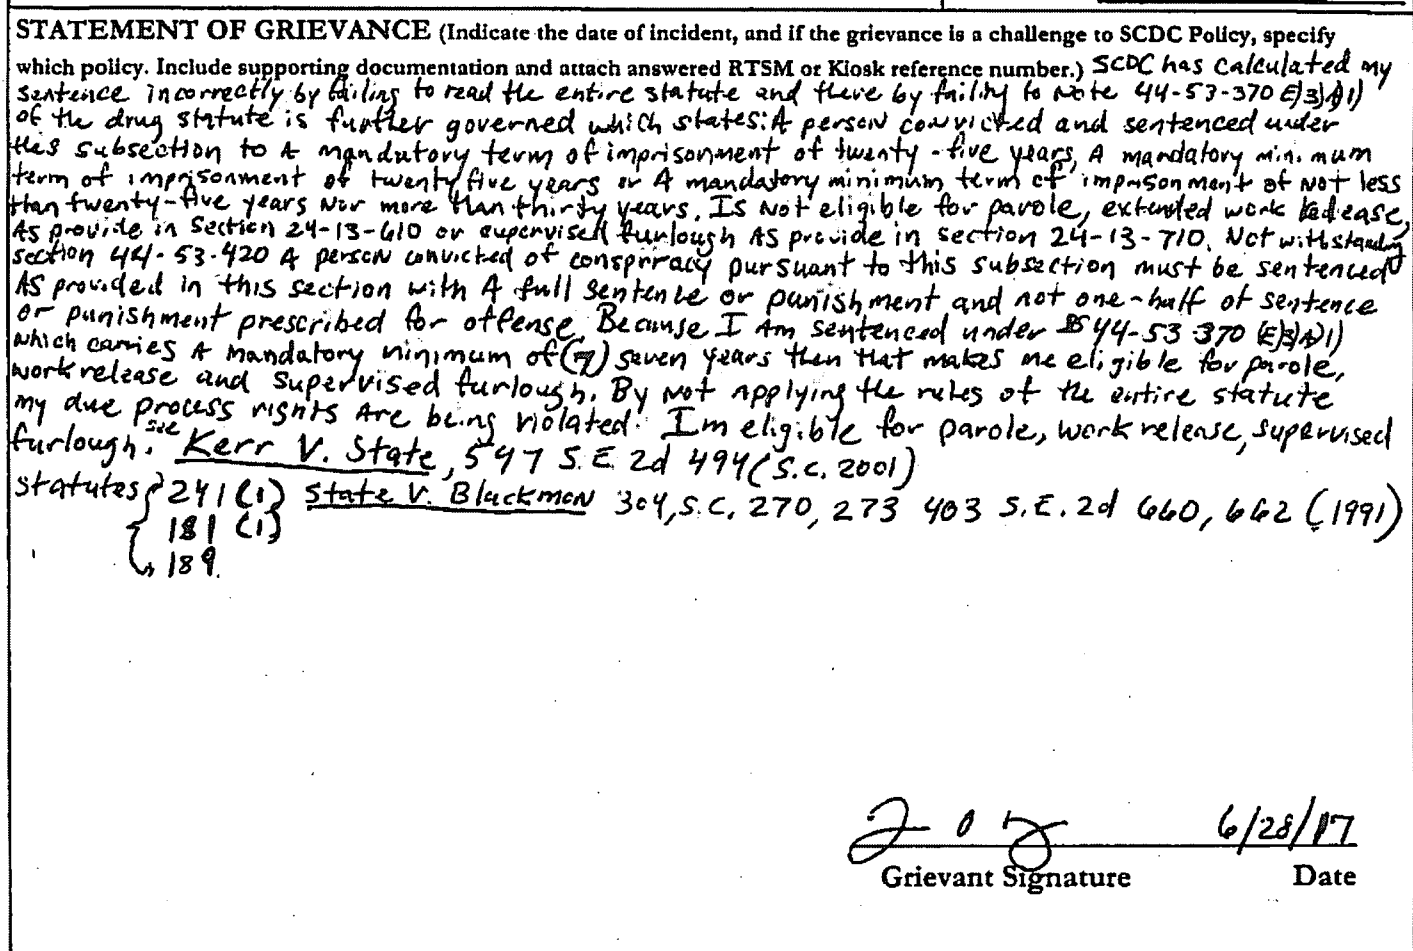 STATEMENT OF GRIEVANCE (Indicate the date of incident, and if the grievance is a challenge to SCDC Policy, specify
which policy. Include supporting documentation and attach answered RTSM or Kiosk reference number.) SCDC has calculated my
sentence incorrectly by failing to read the entire statute and there by failing to Note 44-53-370 E)3)A)1)
of the drug statute is further governed which states: A person convicted and sentenced under
this subsection to A mandutory term of imprisonment of twenty-five years, A mandatory minimum
term of imprisonment of twenty five years or A mandatory minimum term of imprisonment of Not less
than twenty-five years Nor more than thirty years, Is Not eligible for parole, extended work Release,
As provide in Section 24-13-610 or supervised furlough As provide in section 24-13-710. Not withstanding
section 44-53-420 A person convicted of conspiracy pursuant to this subsection must be sentenced
As provided in this section with A full sentence or punishment and not one-half of sentence
or punishment prescribed for offense. Because I Am sentenced under 44-53-370 (E)3)A)1)
which carries A mandatory minimum of (7) seven years then that makes me eligible for parole,
work release and supervised furlough. By Not applying the rules of the entire statute
my due process rights Are being violated. Im eligible for parole, work release, supervised
furlough. see Kerr V. State, 547 S.E. 2d 494 (S.C. 2001)
statutes 241(1) State V. Blackmon 304, S.C. 270, 273 403 S.E. 2d 660, 662 (1991)
181 (1)
189.
6/28/17
Grievant Signature Date